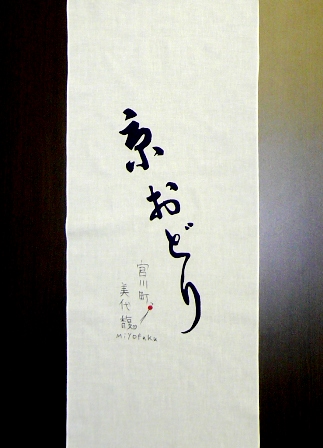 京おどり
宮川町
美代馥
Miyofuku